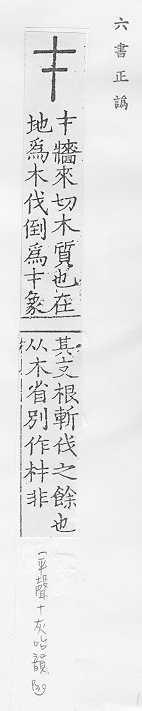 六書正譌
才牆來切木質也在
地爲木伐倒爲才象
其支根斬伐之餘也
从木省別作材非
平聲十灰咍韻